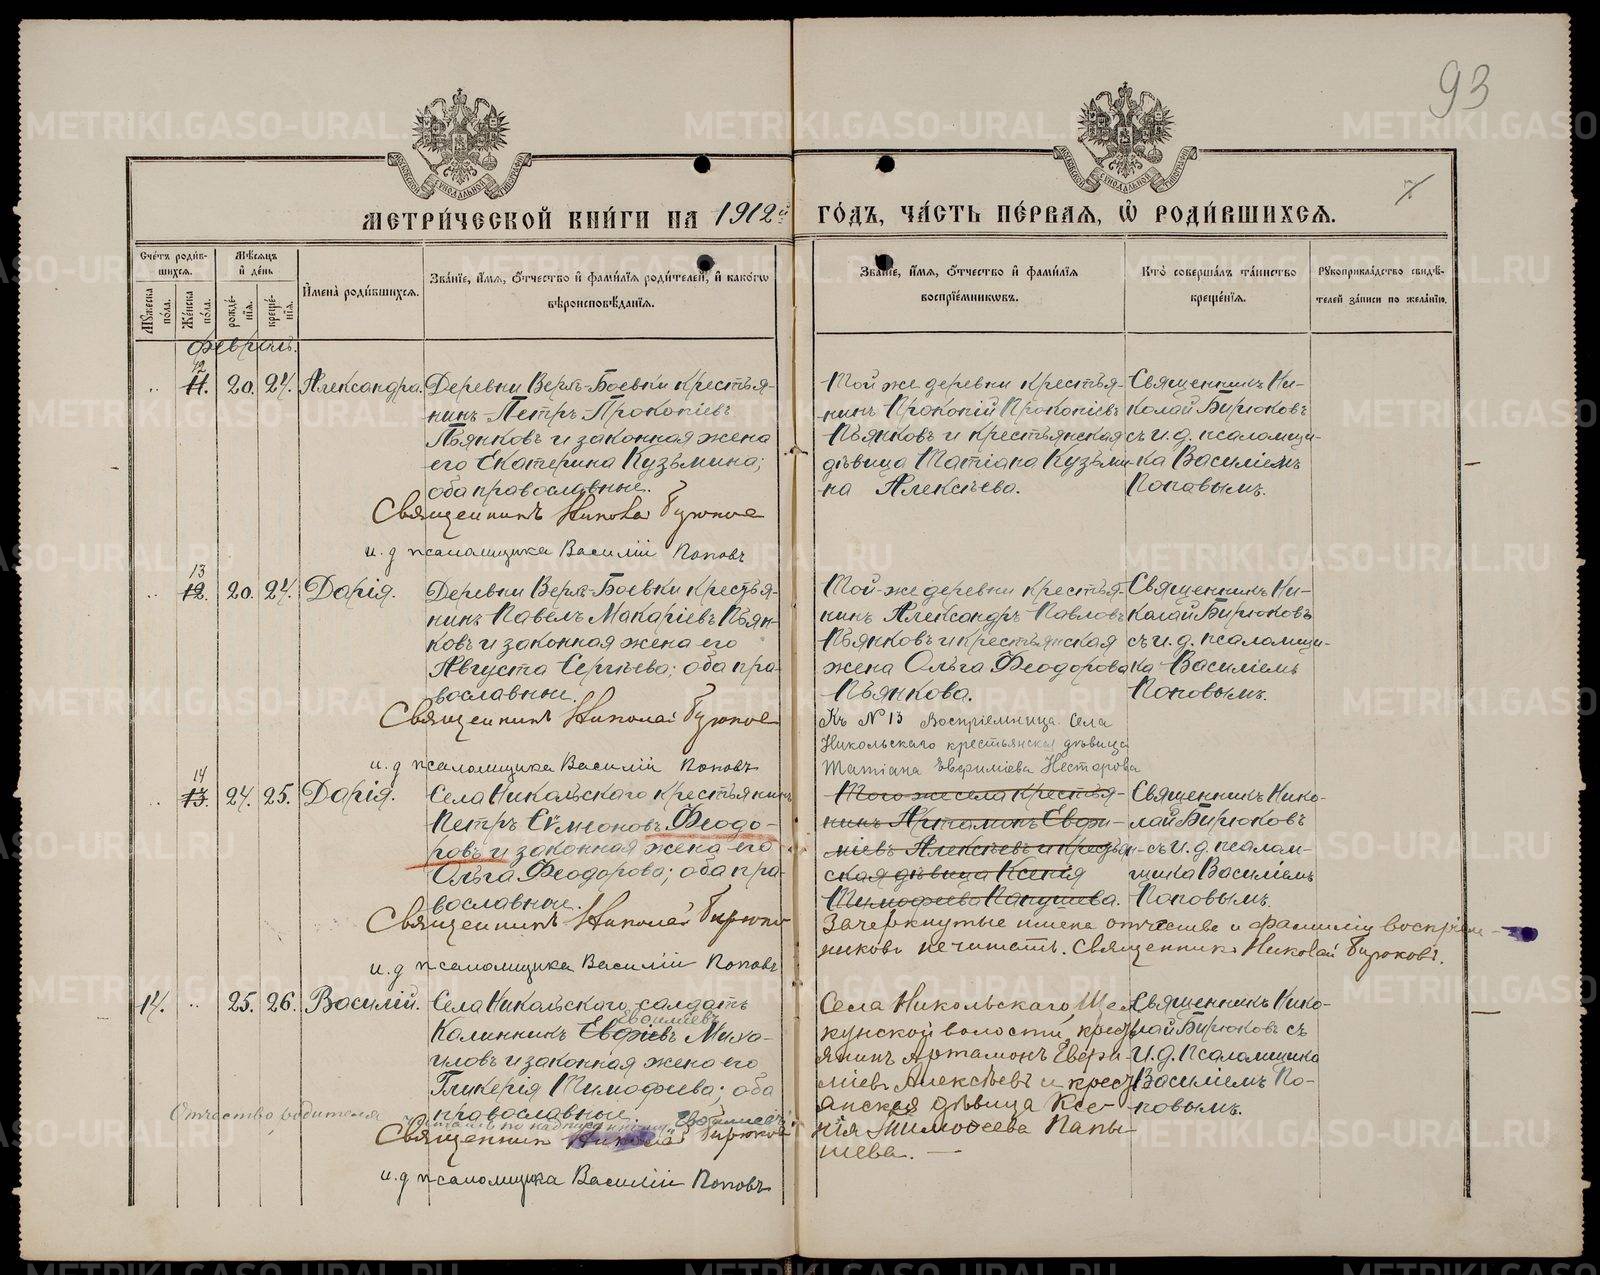 93
МЕТРИ́ЧЕСКОЙ КНИ́ГИ НА 1912й ГО́ДЪ, ЧА́СТЬ ПЕ́РВАЯ, Ѡ РОДИ́ВШИХСЯ.
Сче́тъ роди́вшихся.
Му́жеска по́ла.
Же́нска по́ла.
Мѣ́сяцъ и де́нь
рожде́нія.
креще́нія.
Имена̀ роди́вшихся.
Зва́ніе, и́мя, о́тчество и фами́лія роди́телей, и како́гѡ
вѣроисповѣ́данія.
Зва́ніе, и́мя, о́тчество и фами́лія
воспріе́мниковъ.
Кто̀ соверша́лъ та́инство
креще́нія.
Рукоприкла́дство свидѣ́-
телей за́писи по жела́нію.
Февраль.
12
11. 20. 24. Александра.
Деревни Верхъ-Боевки крестья-
нинъ Петръ Прокопіевъ
Пьянковъ и законная жена
его Екатерина Кузьмина;
оба православные.
Священникъ Николай Бирюков
и. д псаломщика Василій Поповъ
Той же деревни крестья-
нинъ Прокопій Прокопіевъ
Пьянковъ и крестьянская
дѣвица Татіана Кузьми-
на Алексѣева.
Священникъ Ни-
колай Бирюковъ
съ и. д. псаломщи-
ка Василіемъ
Поповымъ.
13
12. 20. 24. Дарія.
Деревни Верхъ-Боевки крестья-
нинъ Павелъ Макаріевъ Пьян-
ковъ и законная жена его
Августа Сергѣева; оба пра-
вославные.
Священникъ Николай Бирюков
и. д псаломщика Василій Поповъ
Той-же деревни крестья-
нинъ Александръ Павловъ
Пьянковъ и крестьянская
жена Ольга Феодорова
Пьянкова.
Къ № 13 Воспріемница. Села
Никольскаго крестьянская дѣвица
Татіана Евфиміева Нестерова
Священникъ Ни-
колай Бирюковъ
съ и. д. псаломщи-
ка Василіемъ
Поповымъ.
14
13. 24. 25. Дарія.
Села Никольскаго крестьянинъ
Петръ Симеоновъ Феодо-
ровъ и законная жена его
Ольга Феодорова; оба пра-
вославные.
Священникъ Николай Бирюков
и. д псаломщика Василій Поповъ
Того же села крестья-
нинъ Артамонъ Евфи-
міевъ Алексѣевъ и крестьян-
ская дѣвица Ксенія
Тимофеева Папушева.
Зачеркнутые имена отчества и фамиліи воспріем-
никовъ нечитать. Священникъ Николай Бирюковъ.
Священникъ Нико-
лай Бирюковъ
съ и. д. псалом-
щика Василіемъ
Поповымъ.
14. 25. 26. Василій.
Села Никольскаго солдатъ
Калинникъ Евфіевъ Миха-
иловъ и законная жена его
Гликерія Тимофиева; оба
православные.
Отчество родителя
Священникъ Николай Бирюков
и. д псаломщика Василій Поповъ
Села Никольскаго Ще-
кунской волости, крест-
янинъ Артамонъ Евфи-
міевъ Алексѣевъ и крест-
янская дѣвица Ксе-
нія Тимофеева Папы-
шева. —
Священникъ Нико-
лай Бирюковъ съ
и. д. псаломщика
Василіемъ По-
повымъ.
METRIKI.GASO-URAL.RU